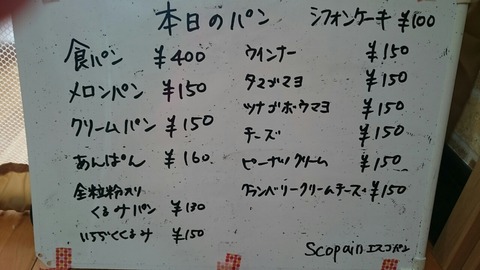 本日のパン シフォンケーキ ¥100
食パン ¥400
メロンパン ¥150
クリームパン ¥150
あんぱん ¥160
全粒粉入り
くるみパン ¥130
いちじくくるみ ¥150
ウインナー ¥150
タマゴマヨ ¥150
ツナゴボウマヨ ¥150
チーズ ¥150
ピーナツクリーム ¥150
クランベリークリームチーズ ¥150
Scopain エスコパン